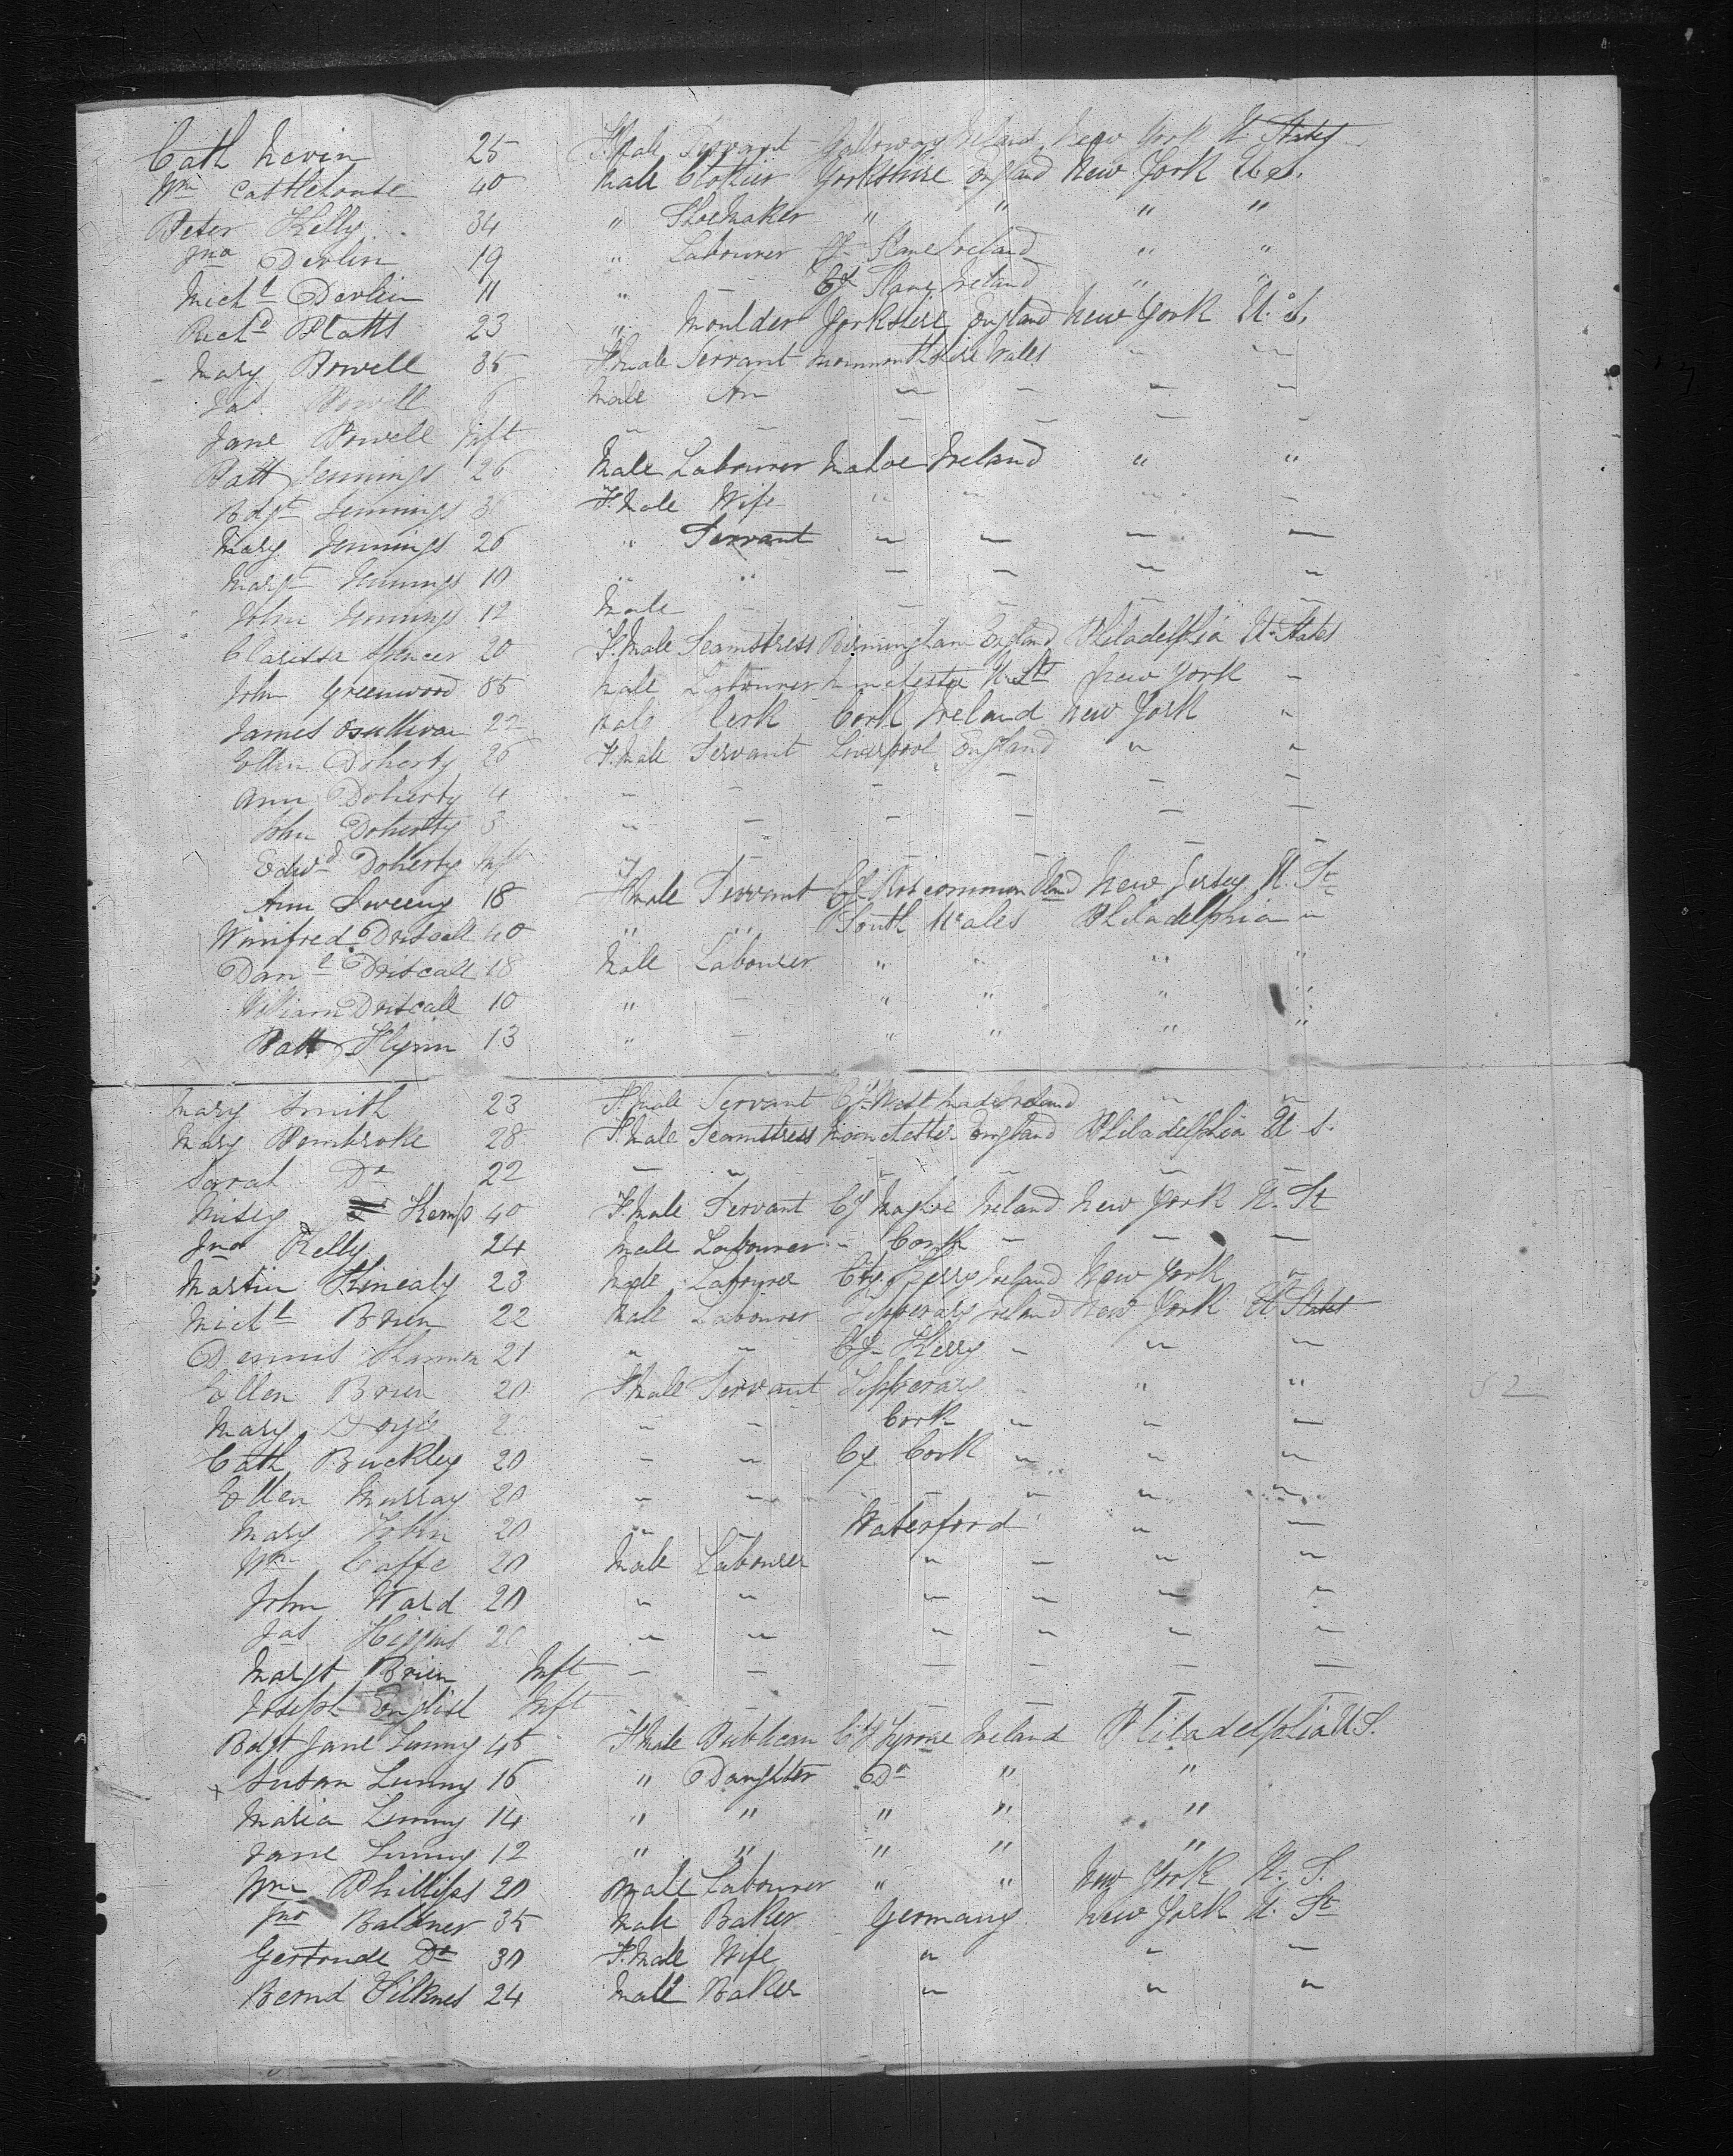 Cath Nevin 25 F.Male Servant Galloway Ireland New York U. States
Wm Castlehouse 40 Male Clothier Yorkshire England New York U.S.
Peter Kelly 34 " Shoemaker " " " "
Jno Devlin 19 " Labourer Cy Slane Ireland " "
Michl Devlin 11 " - Cy Slane Ireland " "
Richd Platts 23 " Moulder Yorkshire England New York U.S.
Mary Powell 35 F.Male Servant Monmouthshire Wales " "
Jas Powell 6 Male Son " - - -
Jane Powell Inft " - - - - -
Patt Jennings 26 Male Labourer Mahoe Ireland " "
Bdgt Jennings F.Male Wife " " " -
Mary Jennings 26 " Servant " - - -
Margt Jennings 10 " " - - - "
John Jennings 12 Male - - - - -
Clarissa Spencer 20 F.Male Seamstress Birmingham England Philadelphia U. States
John Greenwood 35 Male Labourer U. St New York "
James Osullivan 22 Male Clerk Cork Ireland New York "
Ellen Doherty 26 F.Male Servant Liverpool England " "
Ann Doherty 4 - - - - - -
John Doherty 3 " - - - - -
Edwd Doherty Inft " - - - - -
Ann Sweeny 18 F.Male Servant Cy Roscommon Ireld New Jersey U. St
Winifred Driscall 40 " " South Wales Philadelphia "
Danl Driscall 18 Male Labourer " " " "
William Driscall 10 " - " " " "
Patt Flynn 13 " - " " " "
Mary Smith 23 F.Male Servant Cy West Ireland " "
Mary Pembroke 28 F.Male Seamstress Manchester England Philadelphia U.S.
Sarah Do 22 - " " - - -
Kemp 40 F.Male Servant Cy Ireland New York U. St
Jno Kelly 24 Male Labourer - Cork - - -
Martin Kinealy 23 Male Labourer Cty Kerry Ireland New York "
Michl Brien 22 Male Labourer Tipperary Ireland New York U. States
Dennis 21 " " Cy Kerry " " "
Ellen Brien 20 F.Male Servant Tipperary - " "
Mary Doyle - - Cork " " -
Cath Buckley 20 - " Cy Cork " " "
Ellen Murray 20 " " - - " " "
Mary Tobin 20 " - Waterford " -
Wm Caffe 20 Male Labourer " - " "
John Ward 20 " " " " " "
Jas Higgins 20 " " " " " "
Margt Brien Inft - - - - - -
Joseph English Inft - - - - - -
Bdgt Jane Lunny 45 F.Male Publican Cy Tyrone Ireland Philadelphia U.S.
x Susan Lunny 16 " Daughter Do " "
Maria Lunny 14 " " " " "
Jane Lunny 12 " " " " "
Wm Phillips 20 Male Labourer " " New York U. S.
Jno Baldner 35 Male Baker Germany New York U. St
Gertrude Do 30 F.Male Wife " " -
Bernd Filknes 24 Male Baker " " "